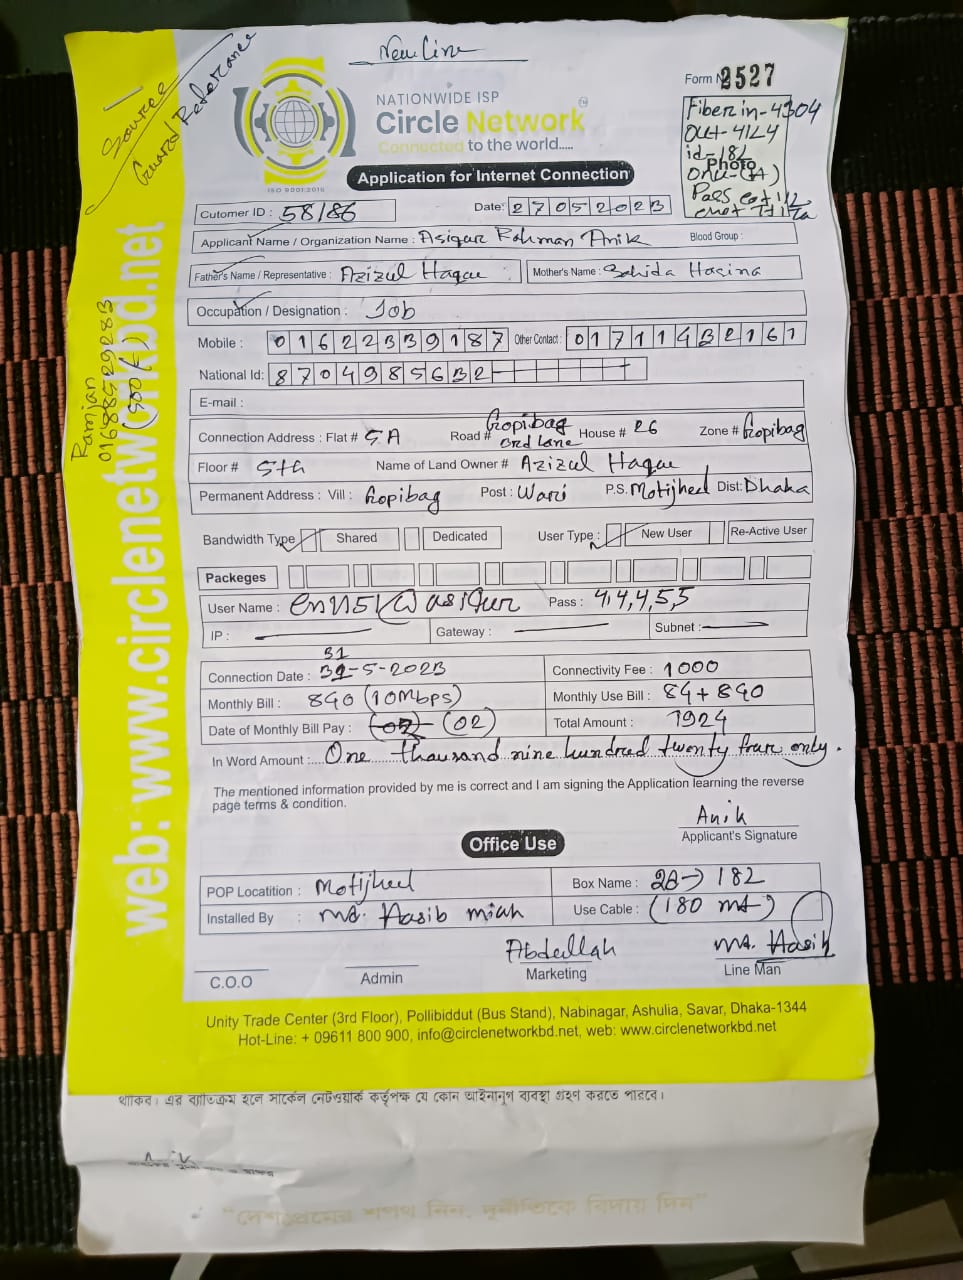 New Line
Source
Guard Reference
Form N 2527
NATIONWIDE ISP
Circle Network
Connected to the world.....
ISO 9001:2015
Fiber in-4304
Out-4124
id-182
Photo
Onu-(A)
Pass
Application for Internet Connection
Cutomer ID : 58186
Date: 27052023
Applicant Name / Organization Name : Asiqur Rohman Anik Blood Group :
Father's Name / Representative : Azizul Haque Mother's Name : Sahida Hasina
Occupation / Designation : Job
Mobile : 01622339187 Other Contact : 01711432161
National Id: 8704985632
E-mail :
Connection Address : Flat # 5A Road # Gopibag 3rd Lane House # 26 Zone # Gopibag
Floor # 5th Name of Land Owner # Azizul Haque
Permanent Address : Vill : Gopibag Post : Wari P.S. Motijheel Dist: Dhaka
Bandwidth Type Shared Dedicated User Type : New User Re-Active User
Packeges
User Name : Pass : 4,4,4,5,5
IP : Gateway : Subnet :
31
Connection Date : 31-5-2023 Connectivity Fee : 1000
Monthly Bill : 840 (10Mbps) Monthly Use Bill : 84+840
Date of Monthly Bill Pay : (02) (02) Total Amount : 1924
In Word Amount :.... One thousand nine hundred twenty four only.
The mentioned information provided by me is correct and I am signing the Application learning the reverse
page terms & condition.
Anik
Applicant's Signature
Office Use
POP Locatition : Motijheel Box Name : 2B→182
Installed By : Md. Hasib miah Use Cable : (180 mt)
Abdullah Md. Hasib
C.O.O Admin Marketing Line Man
Unity Trade Center (3rd Floor), Pollibiddut (Bus Stand), Nabinagar, Ashulia, Savar, Dhaka-1344
Hot-Line: + 09611 800 900, info@circlenetworkbd.net, web: www.circlenetworkbd.net
web: www.circlenetworkbd.net
Ramjan
01688529283
(500/-)
থাকিব। এর ব্যতিক্রম হলে সার্কেল নেটওয়ার্ক কর্তৃপক্ষ যে কোন আইনানুগ ব্যবস্থা গ্রহণ করতে পারবে।
"দেশপ্রেমের শপথ নিন, দুর্নীতিকে বিদায় দিন"